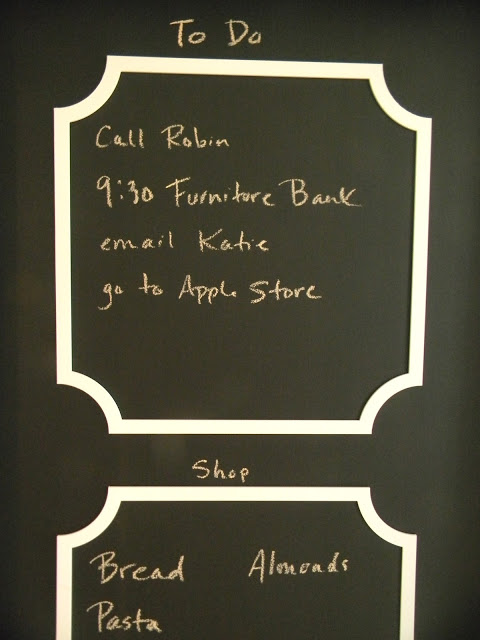 To Do
Call Robin
9:30 Furniture Bank
email Katie
go to Apple Store
Shop
Bread Almonds
Pasta